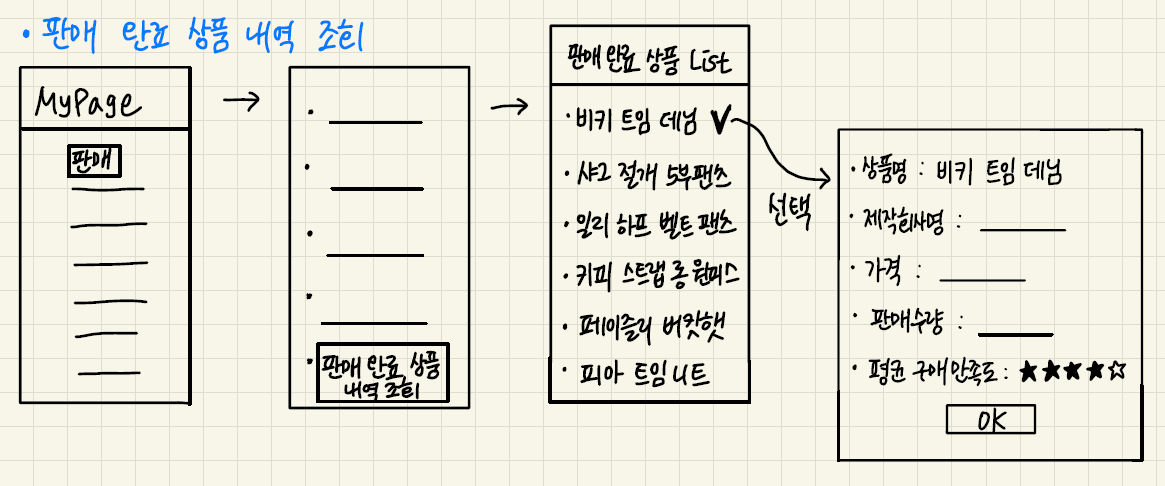 • 판매 완료 상품 내역 조회
MyPage
판매
판매 완료 상품
내역 조회
판매 완료 상품 List
• 비키 트임 데님 V
• 샤그 절개 5부팬츠
• 일리 하프 벨트 팬츠
• 키피 스트랩 롱 원피스
• 페이즐리 버킷햇
• 피아 트임 니트
선택
• 상품명 : 비키 트임 데님
• 제작회사명 :
• 가격 :
• 판매수량 :
• 평균 구매만족도 : ★★★★☆
OK